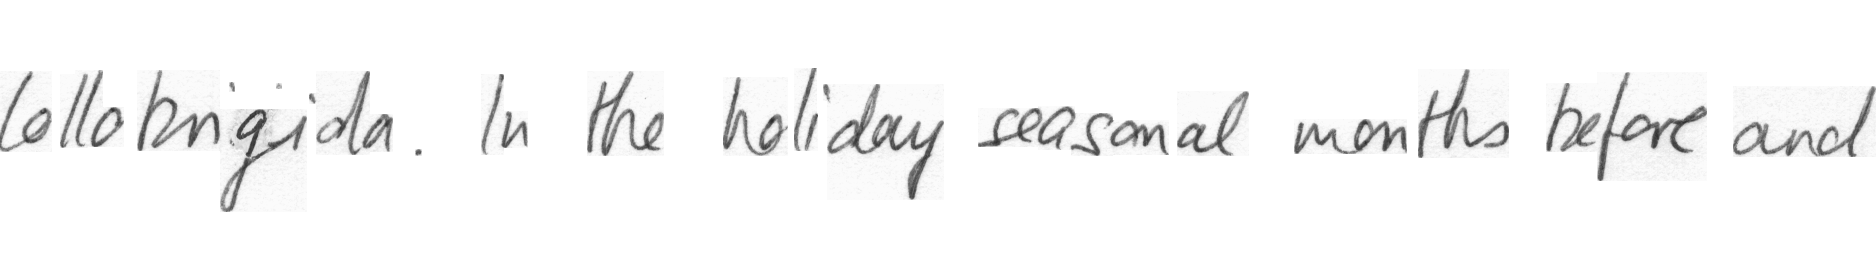 Lollobrigida. In the holiday seasonal months before and